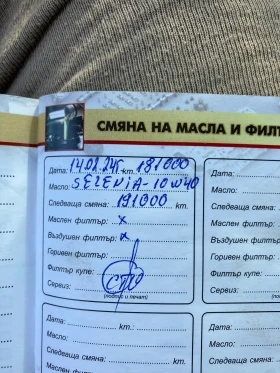 СМЯНА НА МАСЛА И ФИЛТ
Дата: 14.08.24г. 181000 km.
Масло: SELENIA-10W40
Следваща смяна: 191000 km.
Маслен филтър: x
Въздушен филтър: x
Горивен филтър:
Филтър купе:
Сервиз:
(подпис и печат)
Дата:
Масло:
Следваща
Маслен фил
Въздушен
Горивен фи
Филтър куп
Сервиз:
Дата: km.
Масло:
Следваща смяна: km.
Маслен филтър:
Въздушен филтър:
Дата:
Масло:
Следваща
Маслен